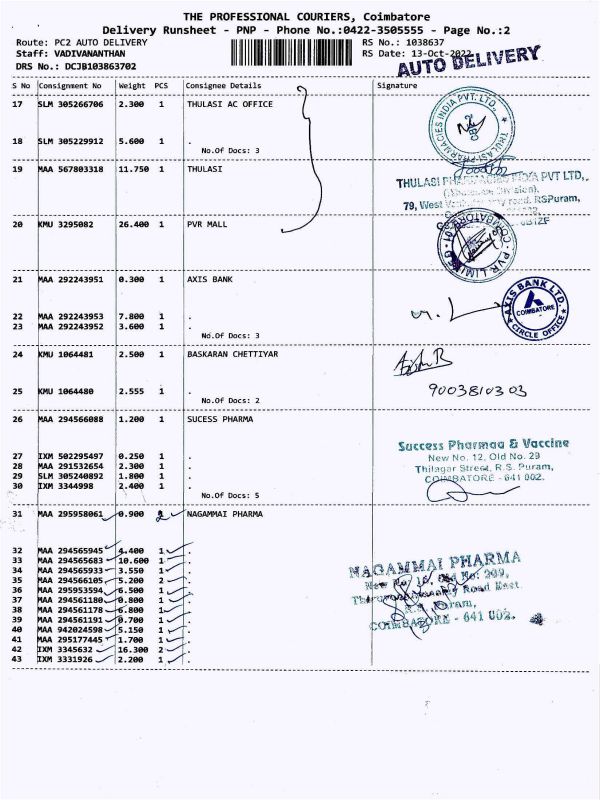 THE PROFESSIONAL COURIERS, Coimbatore
Delivery Runsheet - PNP - Phone No.:0422-3505555 - Page No.:2
Route: PC2 AUTO DELIVERY
RS No.: 1038637
Staff: VADIVANANTHAN
RS Date: 13-Oct-2022
AUTO DELIVERY
DRS No.: DCJB103863702
S No Consignment No Weight PCS Consignee Details Signature
17 SLM 305266706 2.300 1 THULASI AC OFFICE
18 SLM 305229912 5.600 1 .
No.Of Docs: 3
19 MAA 567803318 11.750 1 THULASI
THULASI PHARMACIES INDIA PVT LTD.,
79, West RSPuram,
20 KMU 3295082 26.400 1 PVR MALL
PVR LIMITED COIMBATORE
21 MAA 292243951 0.300 1 AXIS BANK
AXIS BANK LTD.
COIMBATORE
CIRCLE OFFICE
22 MAA 292243953 7.800 1 .
23 MAA 292243952 3.600 1 .
No.Of Docs: 3
24 KMU 1064481 2.500 1 BASKARAN CHETTIYAR
25 KMU 1064480 2.555 1 .
9003810303
No.Of Docs: 2
26 MAA 294566088 1.200 1 SUCESS PHARMA
Success Pharmaa & Vaccine
New No. 12, Old No. 29
Thilagar Street, R.S. Puram,
COIMBATORE - 641 002.
27 IXM 502295497 0.250 1 .
28 MAA 291532654 2.300 1 .
29 SLM 305240892 1.800 1 .
30 IXM 3344998 2.400 1 .
No.Of Docs: 5
31 MAA 295958061 0.900 2 NAGAMMAI PHARMA
32 MAA 294565945 4.400 1 .
33 MAA 294565683 10.600 1 .
34 MAA 294565933 3.550 1 .
35 MAA 294566105 5.200 2 .
36 MAA 295953594 6.500 1 .
37 MAA 294561180 0.800 1 .
38 MAA 294561178 6.800 1 .
39 MAA 294561191 0.700 1 .
40 MAA 942024598 5.150 1 .
41 MAA 295177445 1.700 1 .
42 IXM 3345632 16.300 2 .
43 IXM 3331926 2.200 1 .
NAGAMMAI PHARMA
New No. 16, Old No. 209,
Road East,
COIMBATORE - 641 002.